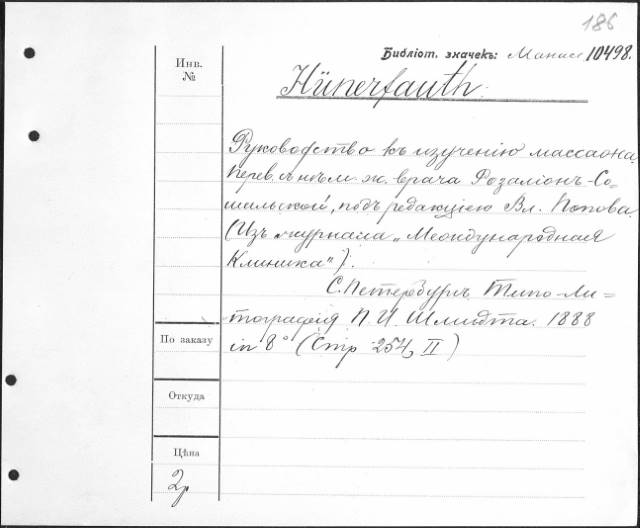 186
Библіот. значекъ: Манас 10498.
Инв.
№
Hünerfauth.
Руководство къ изученію массажа.
Перев. съ нѣм. ж. врача Розаліонъ-Со=
шальской, подъ редакціею Вл. Попова
(Изъ журнала „Международная
Клиника").
С.Петербургъ Типо-Ли=
тографія П. И. Шмидта. 1888
in 8° (Стр 254, II)
По заказу
Откуда
Цѣна
2р